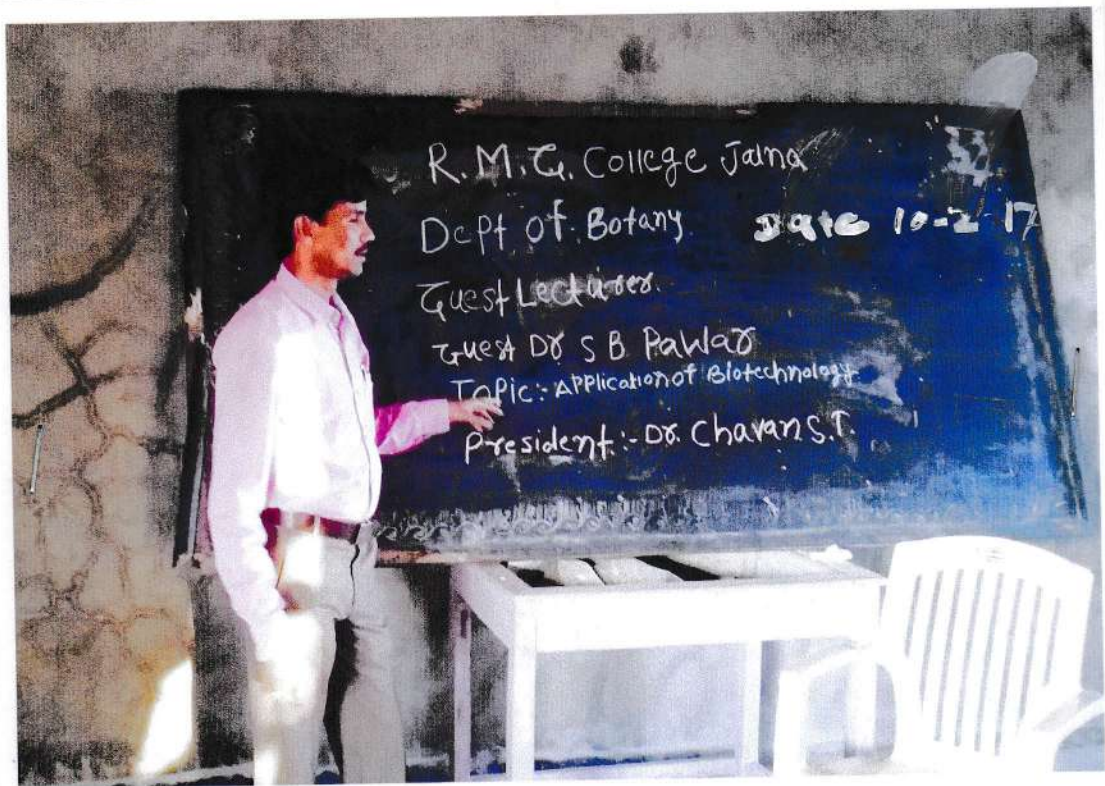 R.M.G. College Jalna
Dept of Botany Date 10-2-17
Guest Lecturer.
Guest Dr S B Pawar
Topic:- Application of Biotechnology
President:- Dr. Chavan S.T.